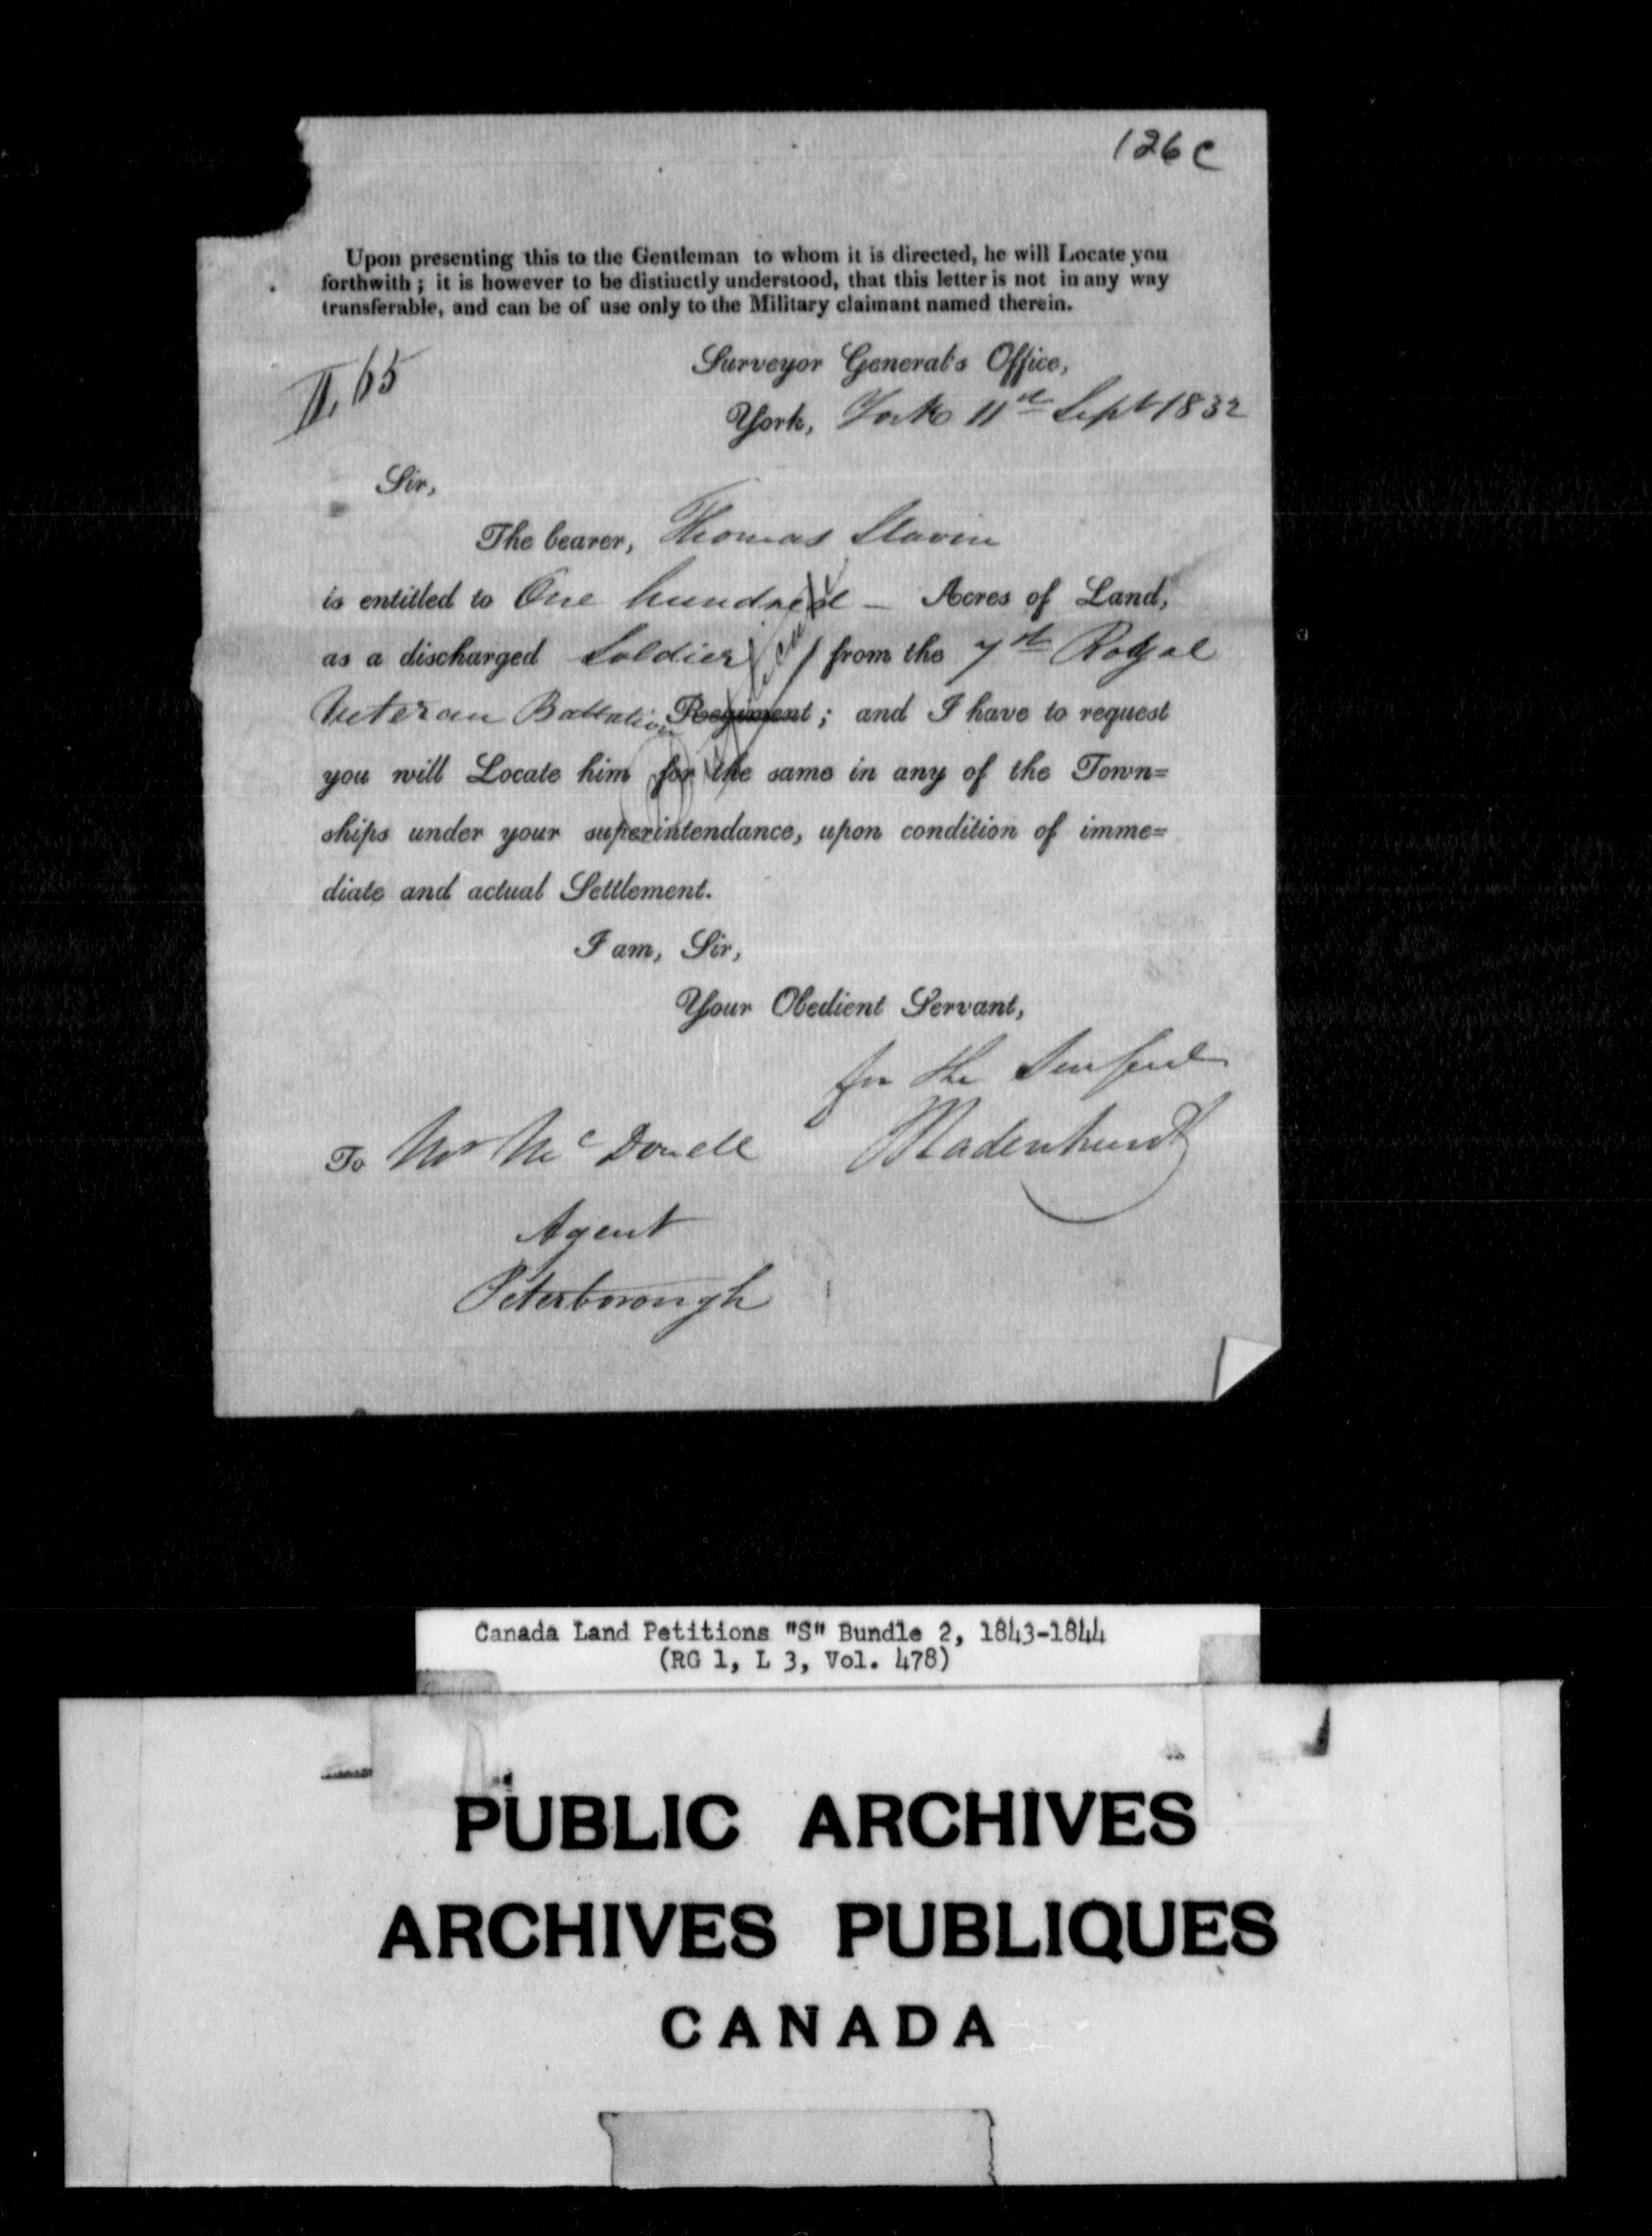 126 c
Upon presenting this to the Gentleman to whom it is directed, he will Locate you
forthwith; it is however to be distinctly understood, that this letter is not in any way
transferable, and can be of use only to the Military claimant named therein.
II. 65
Surveyor General's Office,
York, York 11th Sept 1832
Sir,
The bearer, Thomas Slavin
is entitled to One hundred — Acres of Land,
as a discharged Soldier from the 7th Royal
Veteran Battalion Regiment; and I have to request
you will Locate him for the same in any of the Town=
ships under your superintendance, upon condition of imme=
diate and actual Settlement.
I am, Sir,
Your Obedient Servant,
for the
To Mr McDonell
Agent
Peterborough
Canada Land Petitions "S" Bundle 2, 1843-1844
(RG 1, L 3, Vol. 478)
PUBLIC ARCHIVES
ARCHIVES PUBLIQUES
CANADA